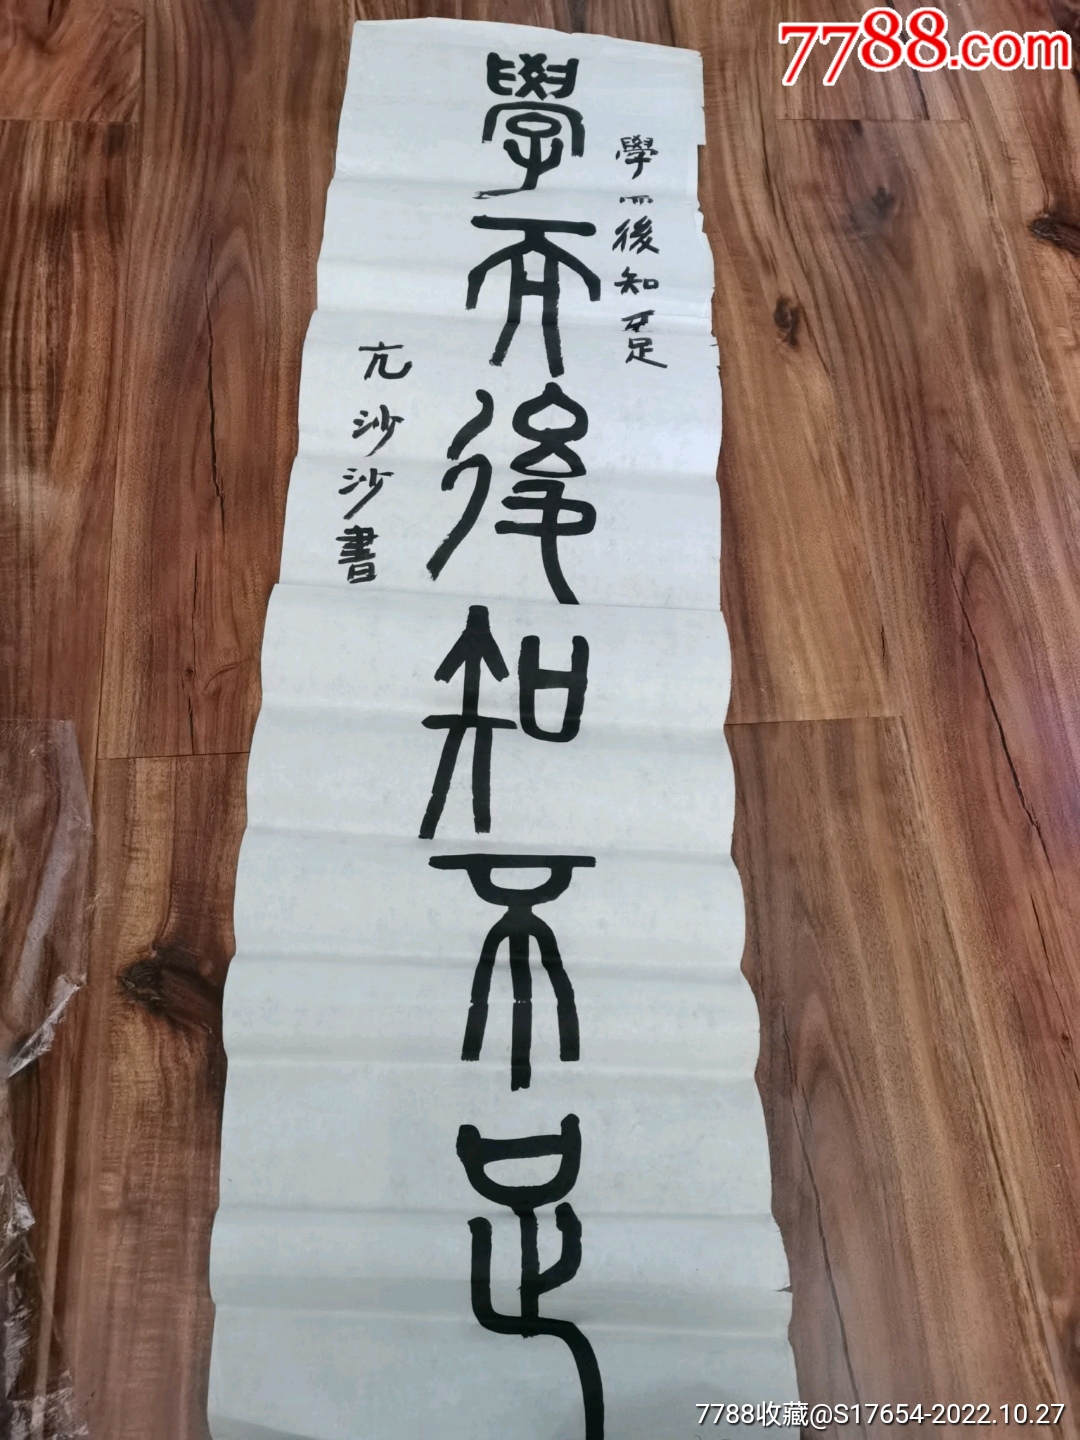 7788.com
學而後知不足
學而後知不足
亢沙沙書
7788收藏@S17654-2022.10.27